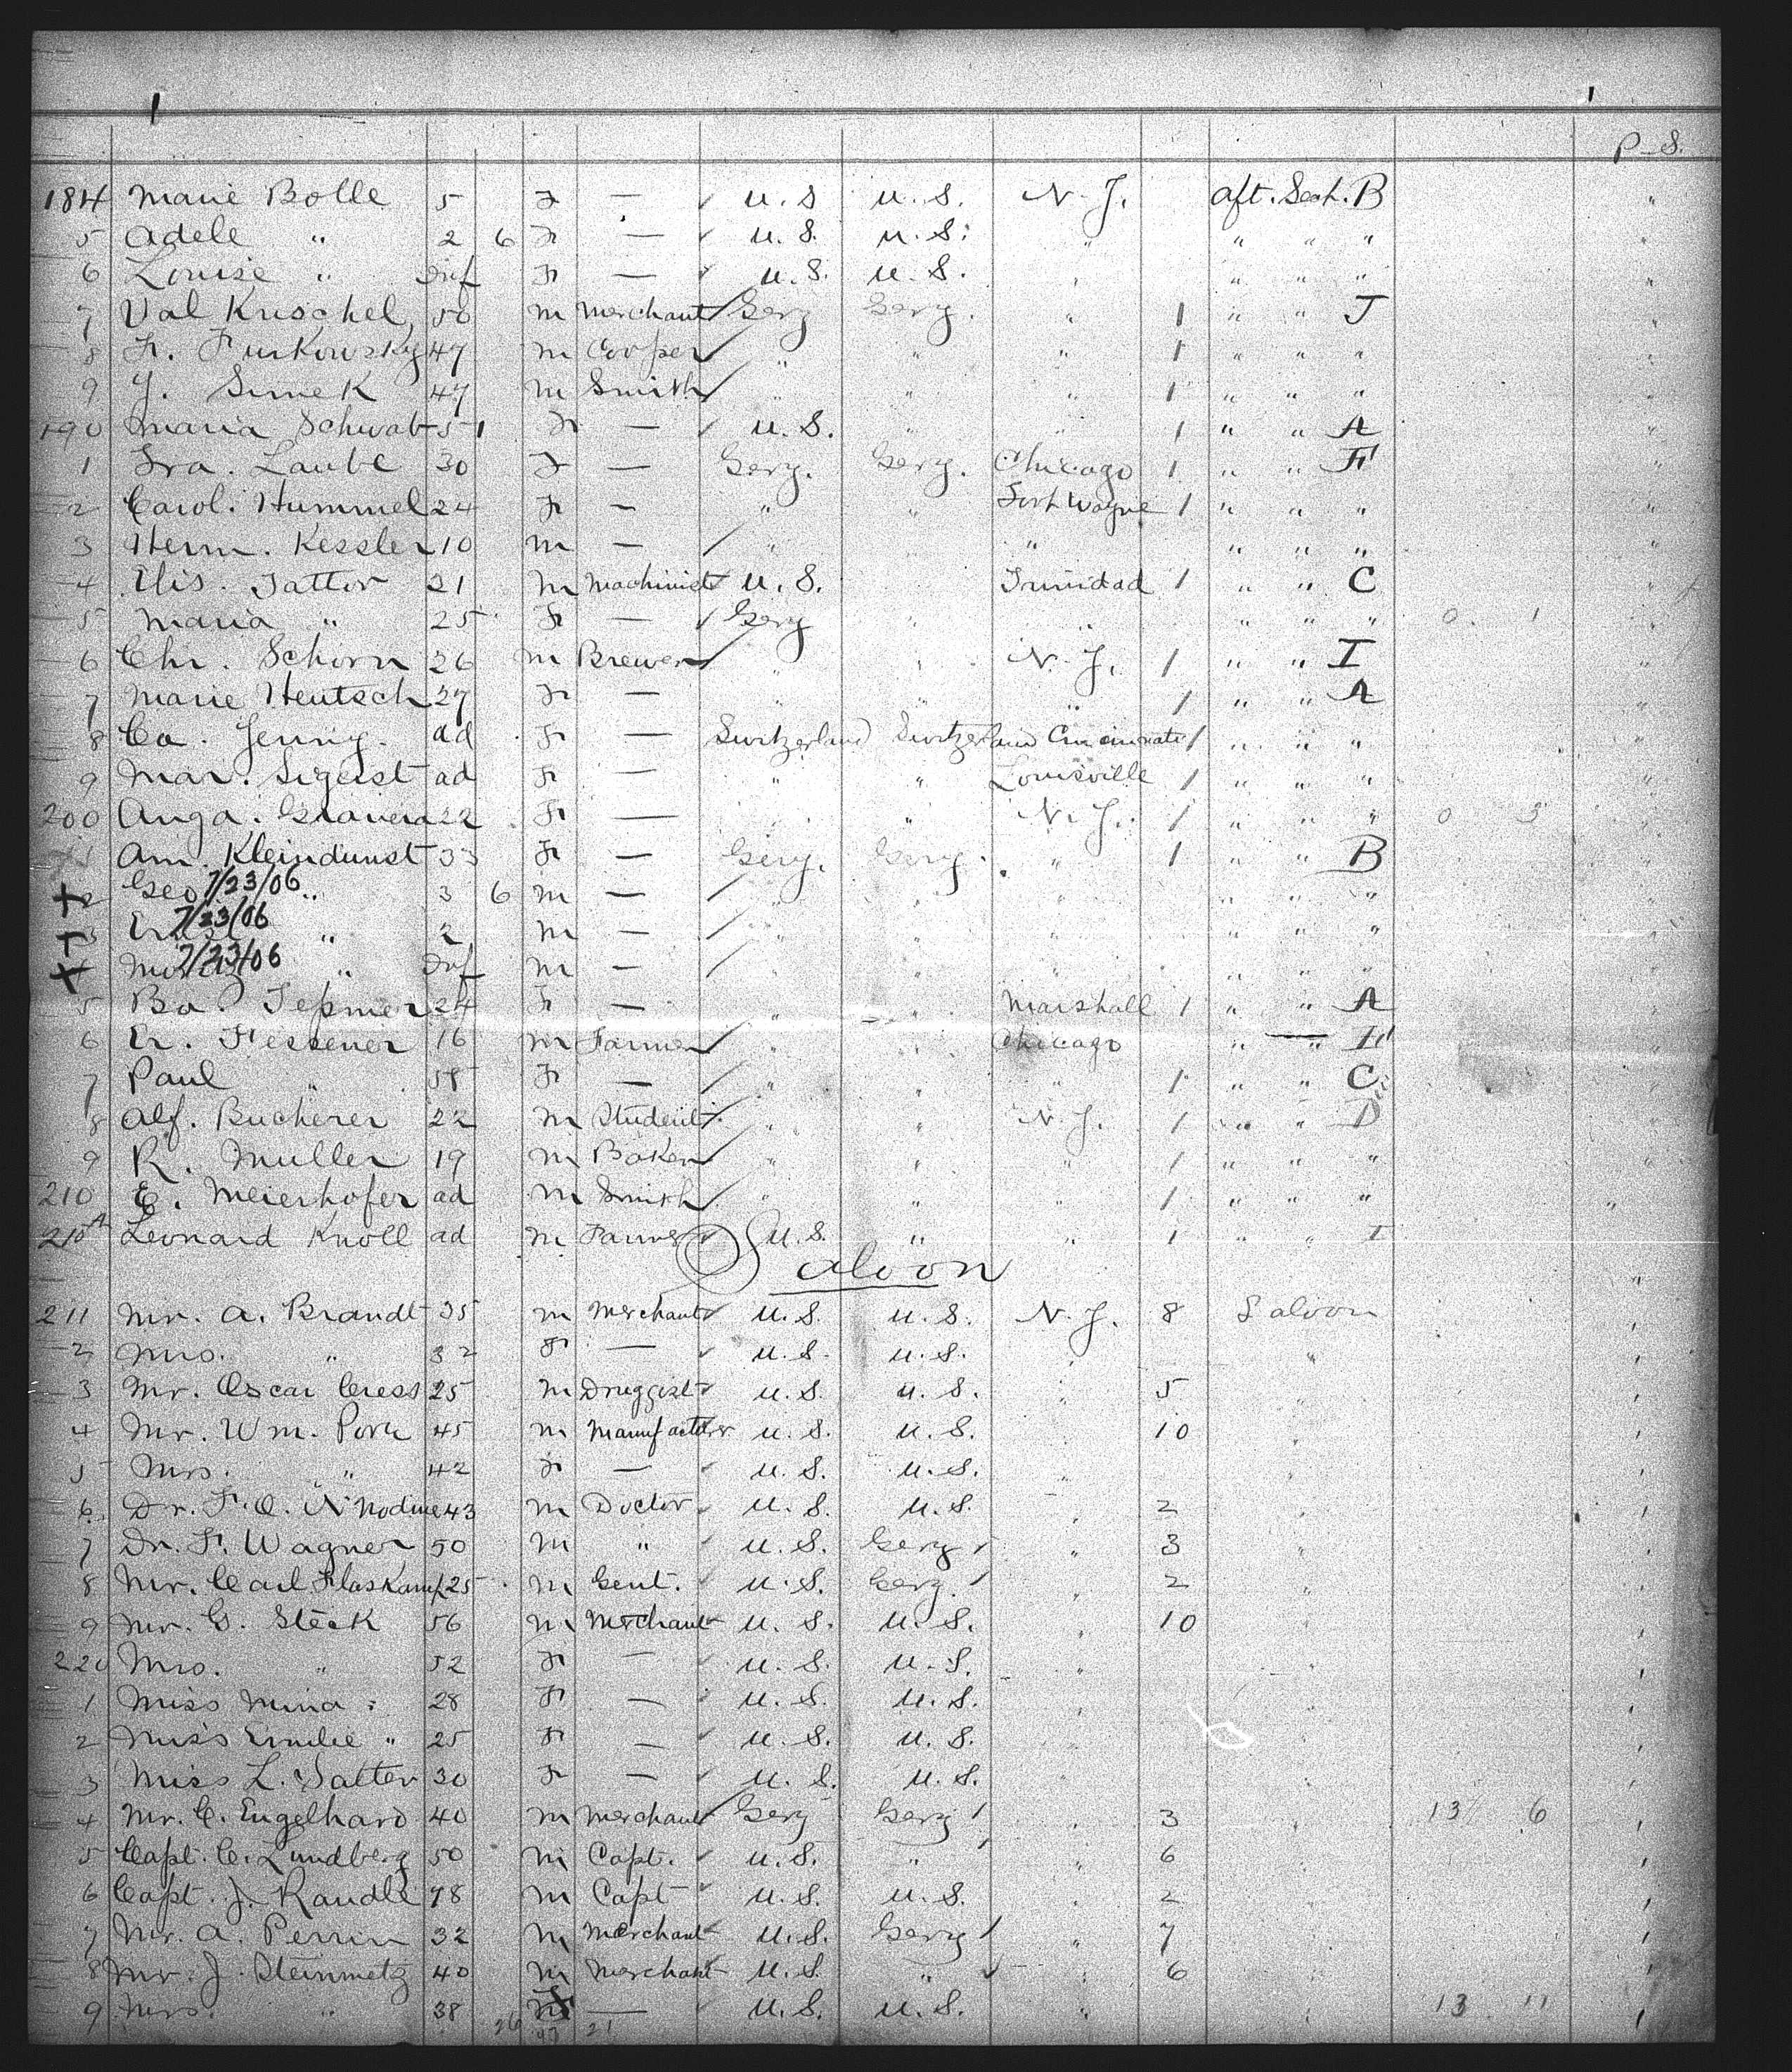 1 1
P-S.
184 Marie Bolle 5 F — U.S U.S. N.J. aft. Sect. B "
5 Adele " 2 6 F — U.S. U.S. " " " " "
6 Louise " Inf F — U.S. U.S. " " " " "
7 Val Kuschel, 50 M Merchant Gery Gery. " 1 " " J "
8 F. Furkowsky 47 M Cooper " " " 1 " " " "
9 J. Simek 47 M Smith " " " 1 " " " "
190 Maria Schwab 51 F — U.S. " " 1 " " A "
1 Fra. Laube 30 F — Gery. Gery. Chicago 1 " " F "
2 Carol. Hummel 24 F — " " Fort Wayne 1 " " " "
3 Herm. Kessler 10 M — " " " " " " "
4 Tattor 21 M Machinist U.S. Trinidad 1 " " C "
5 Maria " 25 F — Gery " " " " " 0 1 "
6 Chr. Schorn 26 M Brewer " " N.J. 1 " " I "
7 Marie Hentsch 27 F — " " " 1 " " A "
8 Ca. Jenny. ad F — Switzerland Switzerland Cincinnati 1 " " " "
9 Mar. Sigrist ad F — " " Louisville 1 " " " "
200 Auga. 22 F — " " N.J. 1 " " " 0 5 "
Am. Kleindunst 33 F — Gery. Gery. " 1 " " B "
X 2 Geo 7/23/06 " 3 6 M — " " " "
X 3 7/23/06 " 2 M — " " " "
X 4 7/23/06 " Inf M — " " " "
5 Ba. 24 F — " " Marshall 1 " " A "
6 Er. Fessener 16 M Farmer " " Chicago " " F "
7 Paul " 58 F — " " " 1 " " C "
8 Alf. Bucherer 22 M Student " " N.J. 1 " " D "
9 R. Muller 19 M Baker " " " 1 " " " "
210 E. Meierhofer ad M Smith " " " 1 " " " "
210A Leonard Knoll ad M Farmer U.S. " " 1 " " I
Saloon "
211 Mr. A. Brandt 35 M Merchant U.S. U.S. N.J. 8 Saloon "
2 Mrs. " 32 F — U.S. U.S. " " "
3 Mr. Oscar Cress 25 M Druggist U.S. U.S. " 5 "
4 Mr. Wm. 45 M Manufacturer U.S. U.S. " 10 " "
5 Mrs. " 42 F — U.S. U.S. " "
6. Dr. F. O. 43 M Doctor U.S. U.S. " 2 " "
7 Dr. F. Wagner 50 M " U.S. Gery " 3 " "
8 Mr. Carl Flaskamp 25 M Gent. U.S. Gery. " 2 " "
9 Mr. G. Steck 56 M Merchant U.S. U.S. " 10 "
220 Mrs. " 52 F — U.S. U.S. " " "
1 Miss Mina " 28 F — U.S. U.S. "
2 Miss Emilie " 25 F — U.S. U.S. "
3 Miss L. Salter 30 F — U.S. U.S. "
4 Mr. C. Engelhard 40 M Merchant Gery Gery " 3 " 13 6 "
5 Capt. C. Lundberg 50 M Capt. U.S. " " 6 " "
6 Capt. J. Randle 78 M Capt U.S. U.S. " 2 " "
7 Mr. A. Perrin 32 M Merchant U.S. Gery " 7 " "
8 Mr. J. Steinmetz 40 M Merchant U.S. " " 6 " "
9 Mrs. " 38 F — U.S. U.S. " " 13 11 "
26 47 21